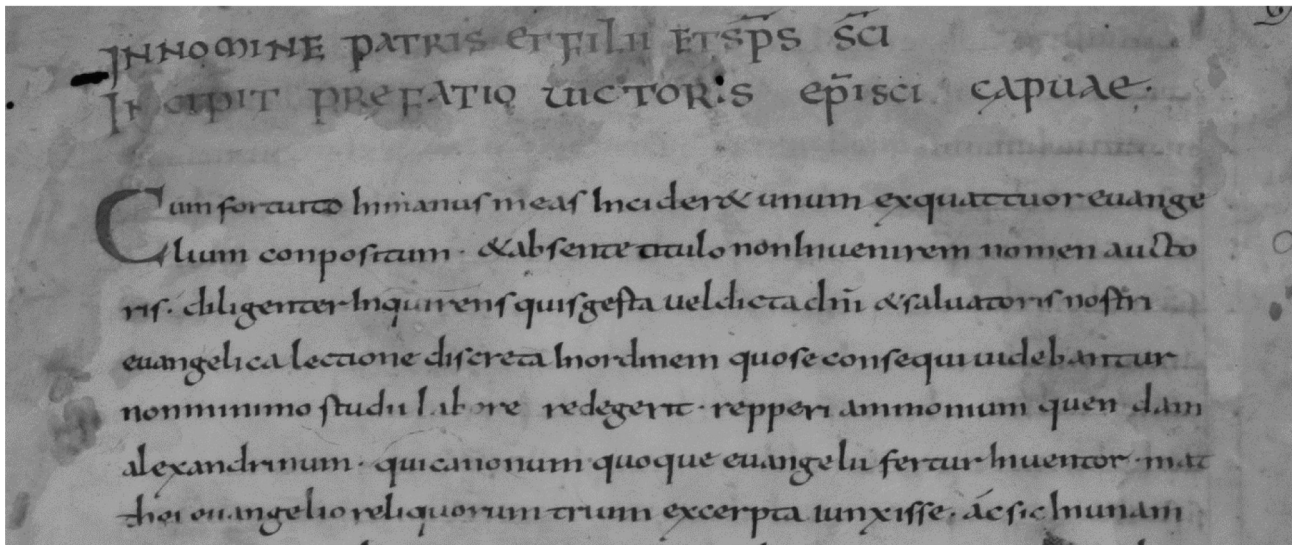 IN NOMINE PATRIS ET FILII ET SP̅S S̅C̅I
INCIPIT PREFATIO VICTORIS EP̅ISCI CAPUAE·
Cum fortuito in manus meas incideret unum ex quattuor euange
lium conpositum · & absente titulo non inuenirem nomen aucto
ris · diligenter inquirens quis gesta uel dicta dn̅i & saluatoris nostri
euangelica lectione discreta in ordinem quo se consequi uidebantur
non minimo studii labore redegerit · repperi ammonium quendam
alexandrinum · qui canonum quoque euangelii fertur inuentor · mat
thei euangelio reliquorum trium excerpta iunxisse · ac sic in unam